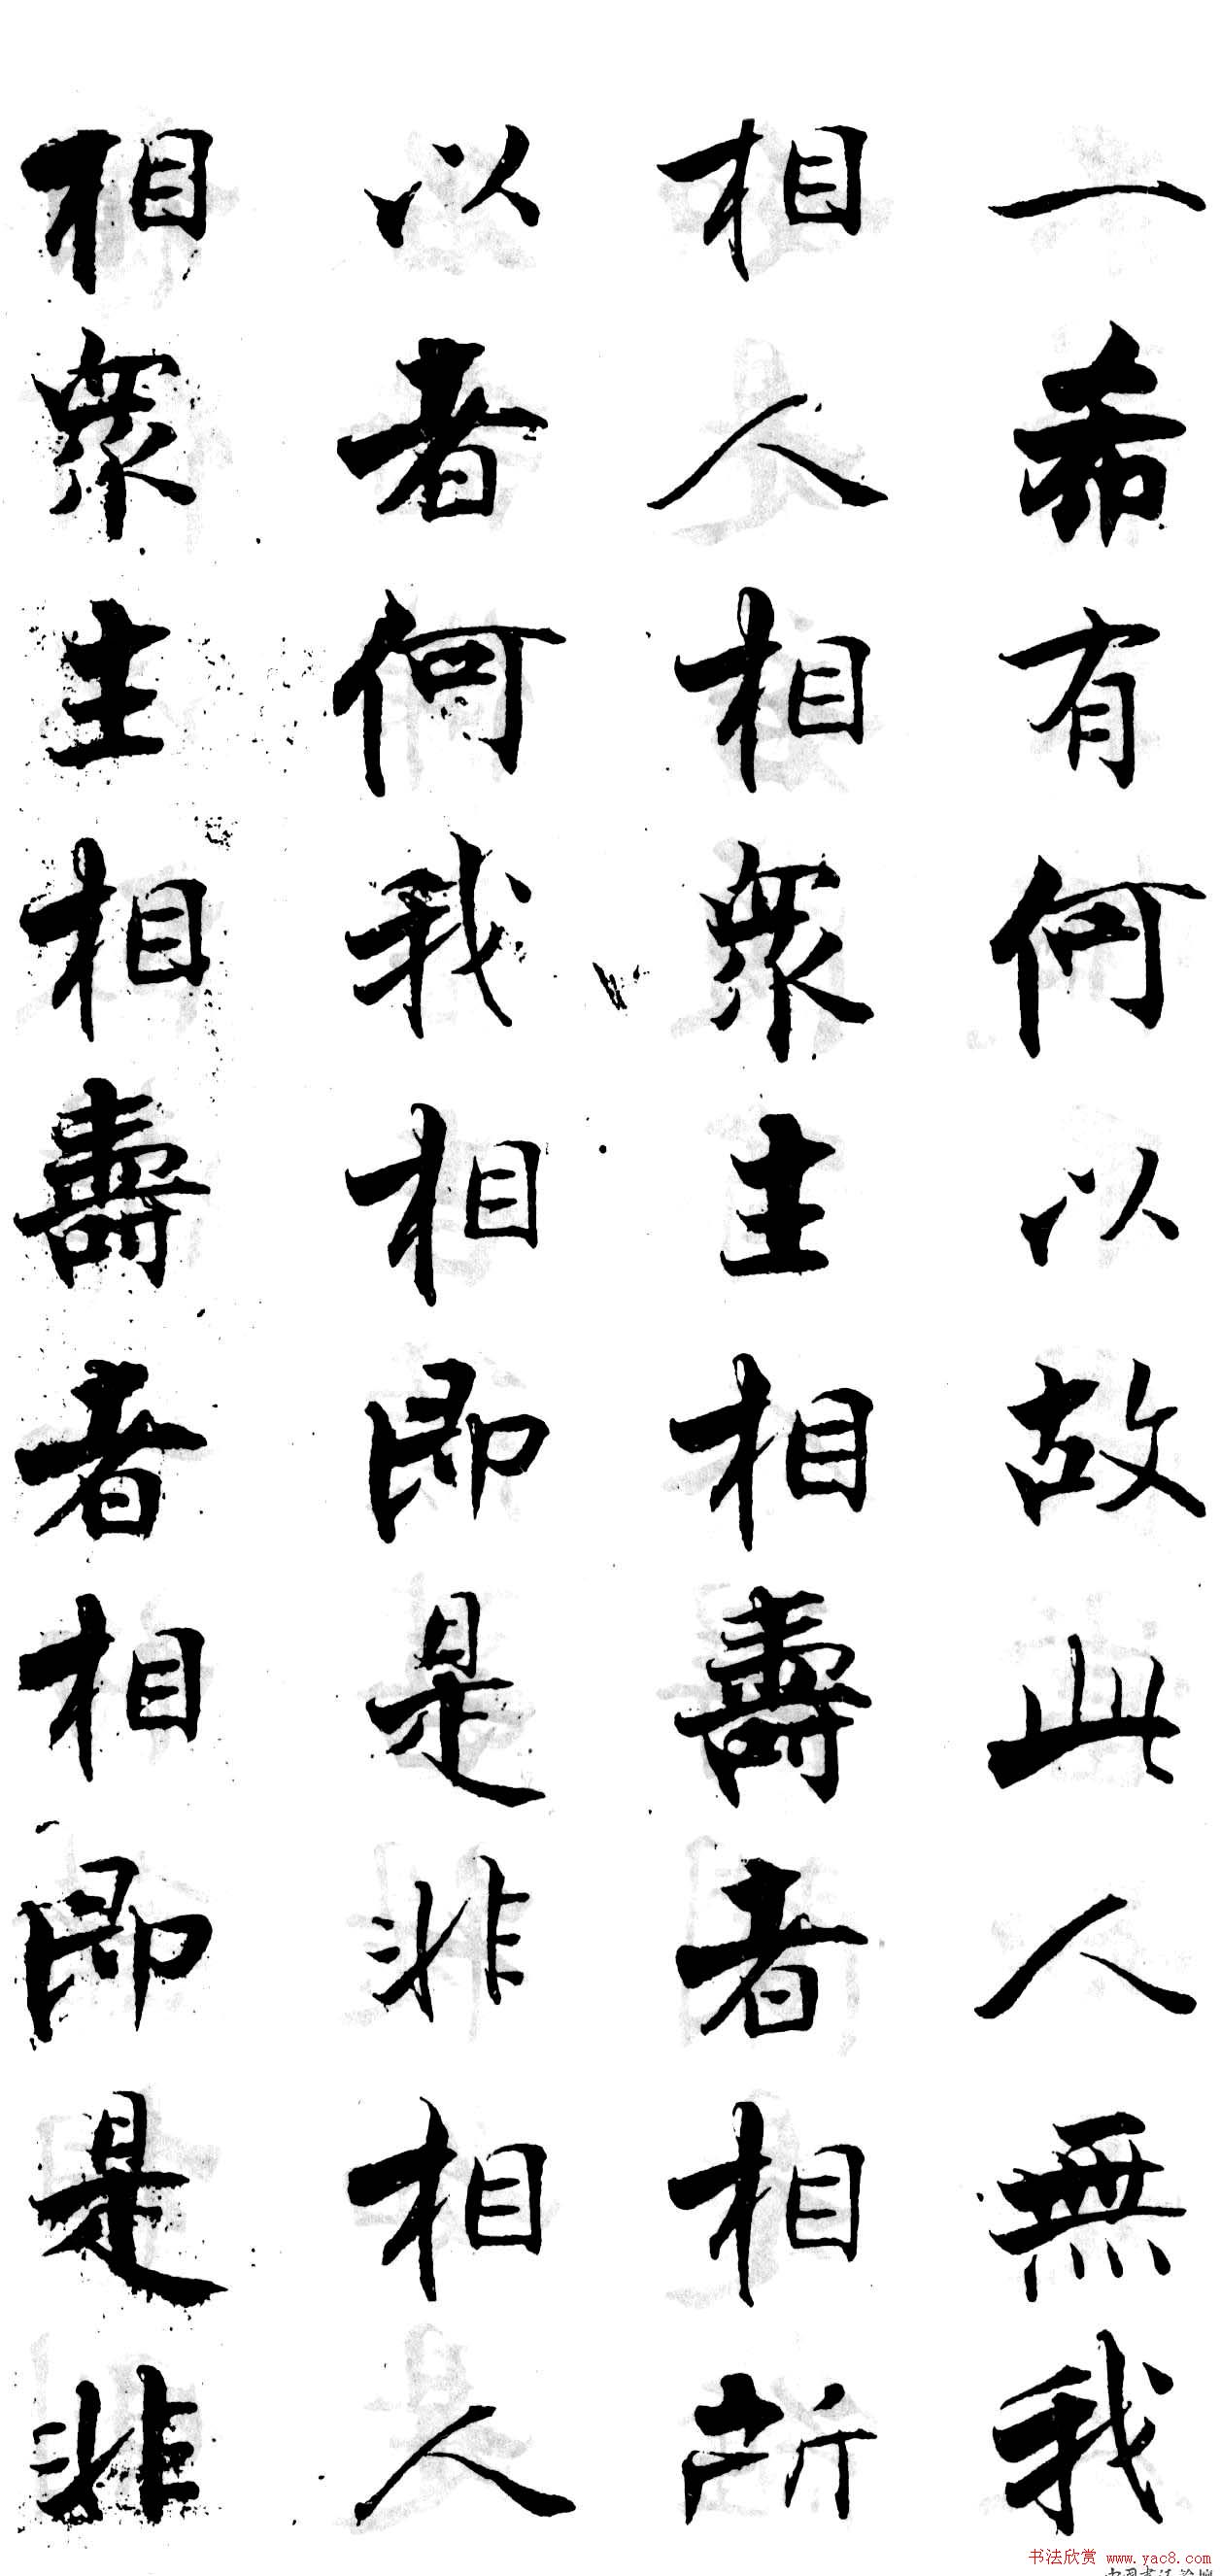 一希有何以故此人無我
相人相衆生相壽者相所
以者何我相即是非相人
相衆生相壽者相即是非
书法欣赏 www.yac8.com